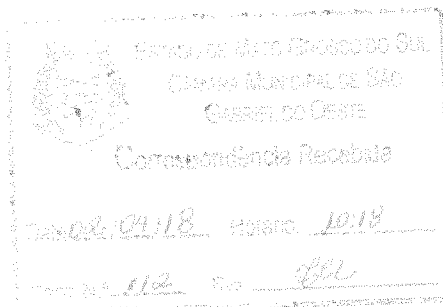 ESTADO DE MATO GROSSO DO SUL
CÂMARA MUNICIPAL DE SÃO
GABRIEL DO OESTE
Correspondência Recebida
Data 02/04/18 Horário 10:18
112